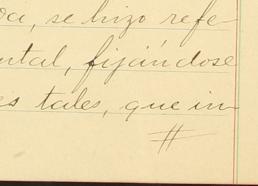 oa, se hizo refe
ntal, fijándose
es tales, que in
#